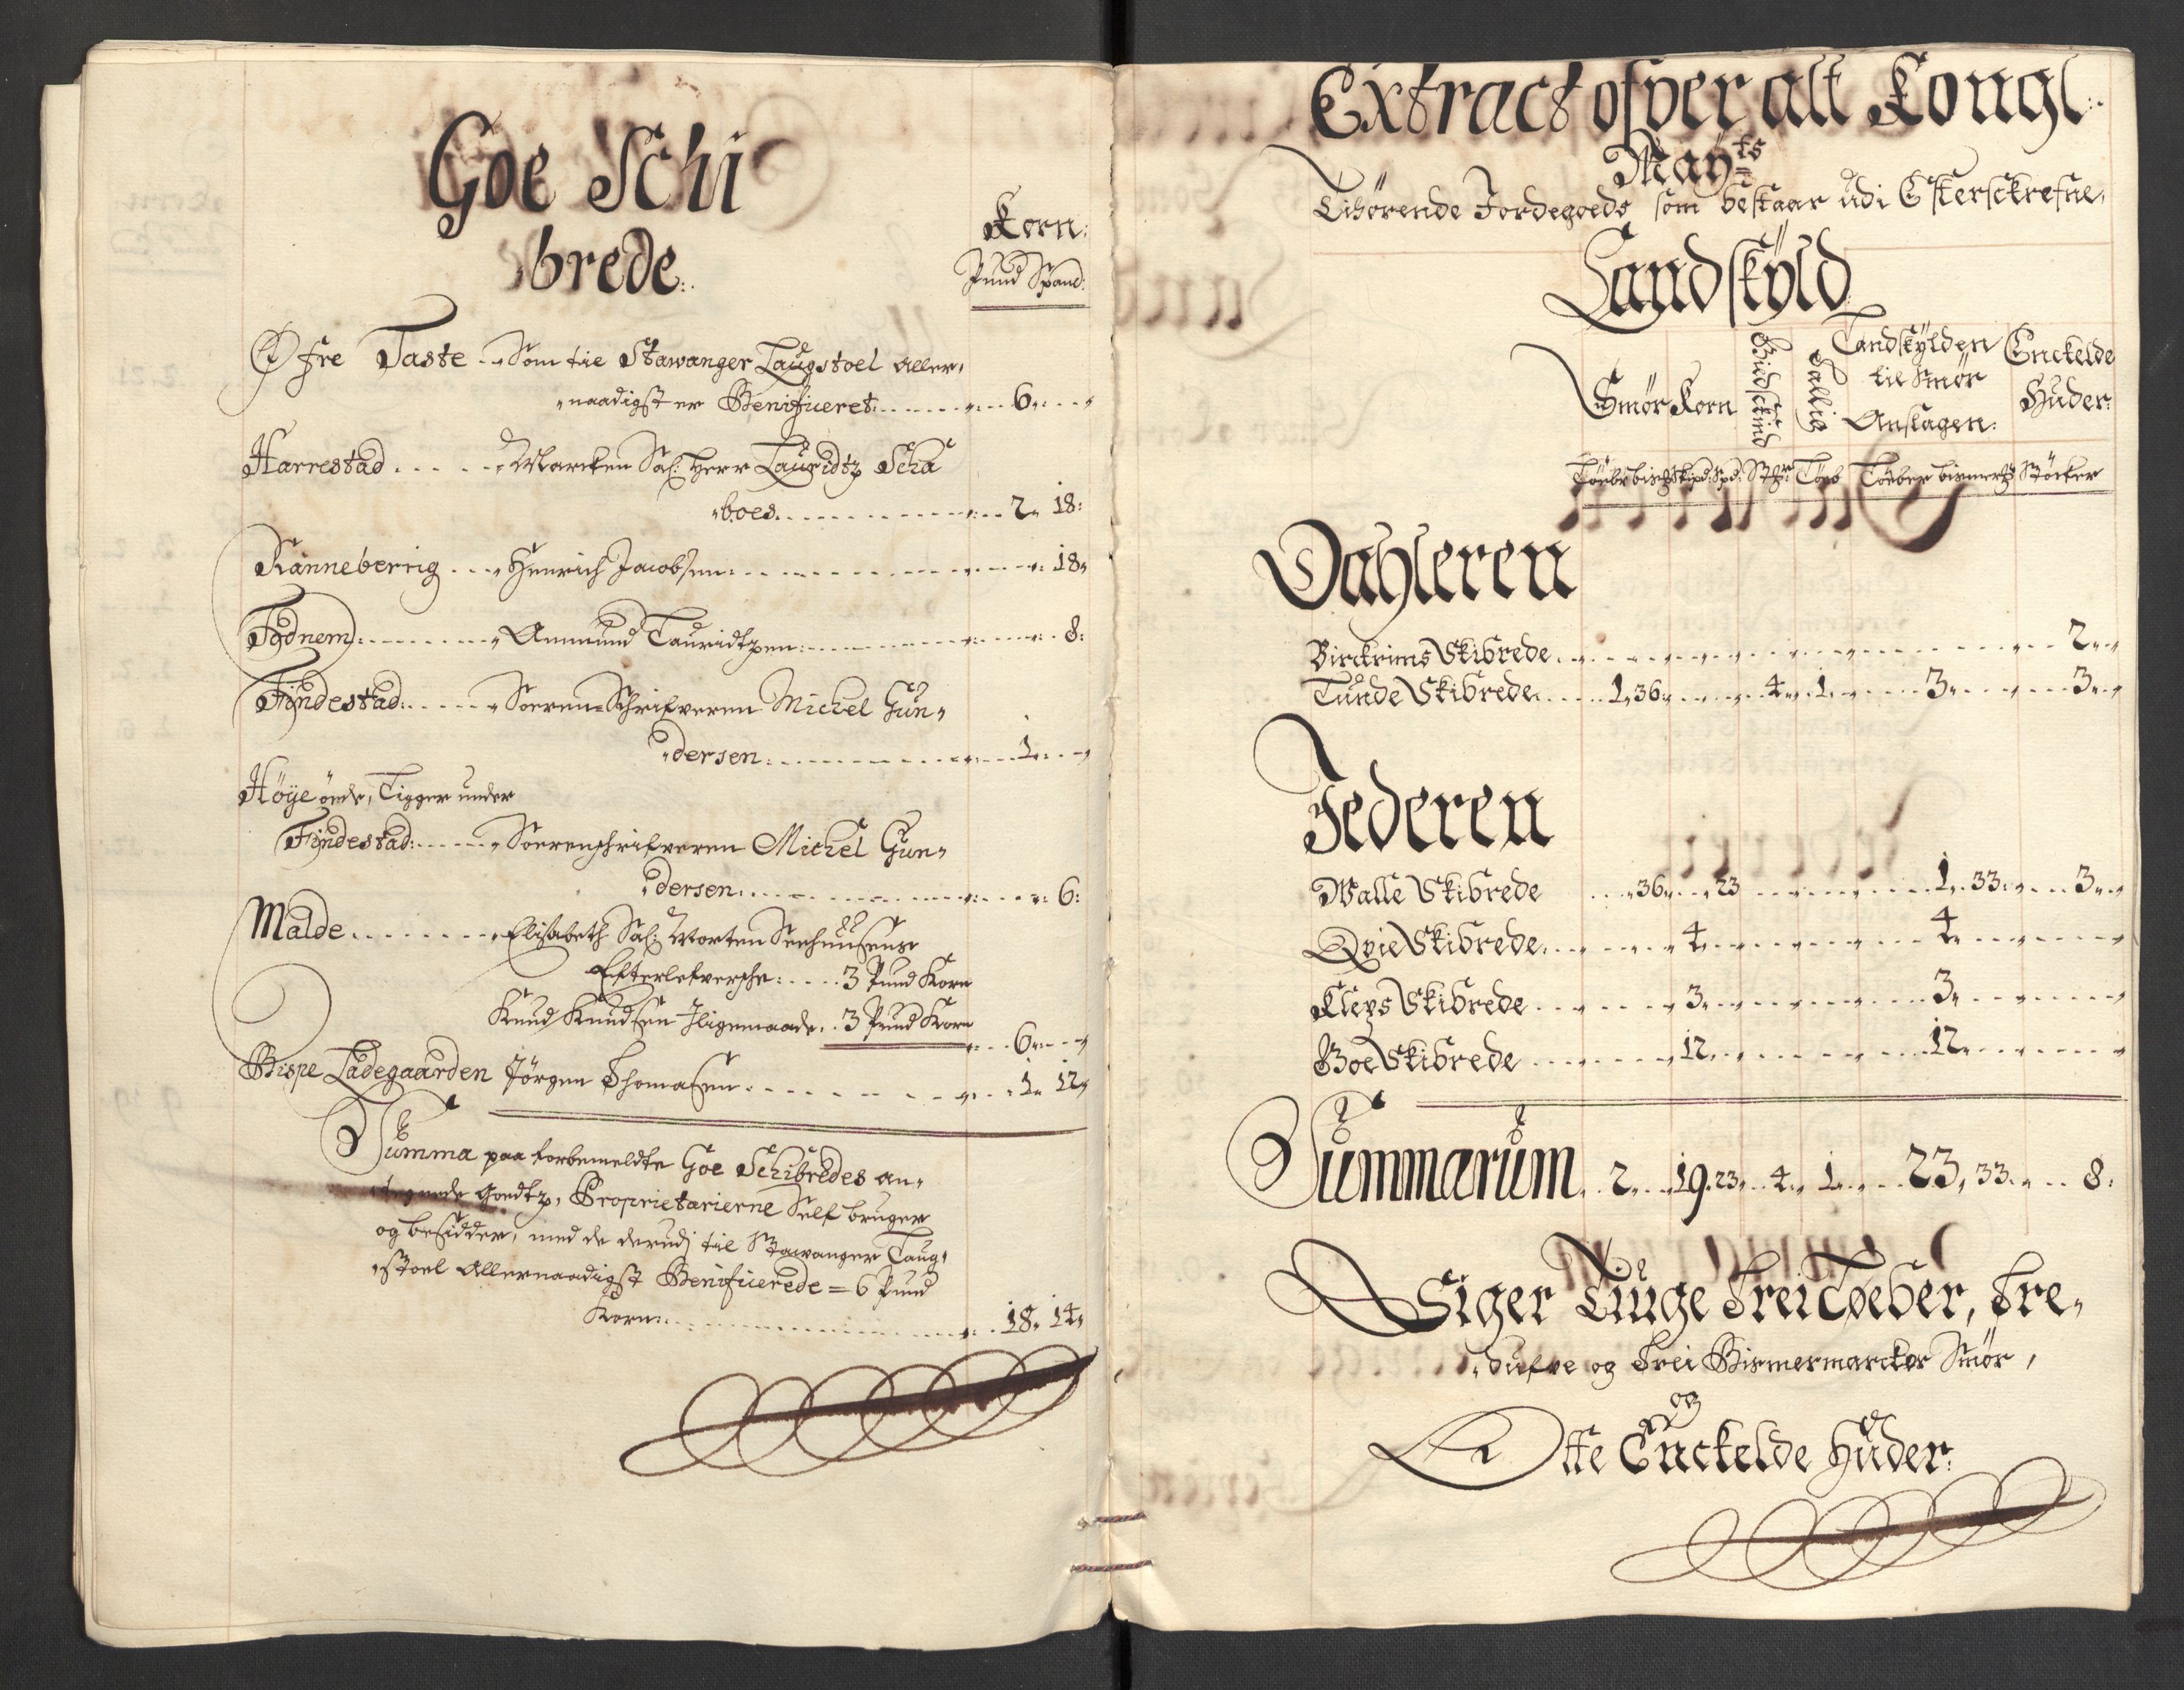 Goe Schi
brede:
Korn:
Pund Spand:
Øfre Taste .. Som tie Stawanger Laugstoel Aller,
"naadigst er Benificeret: ........ 6 ...
Harrestad ..... Marcken Sal: Herr Lauridtz Scha
"boes ........ 2. 18:
Ranneberrig ... Henrich Jacobsen: ........ 18,
Fodnem: ........ Ammund Lauridtzen: ........ 8:
Fyndestad: ..... Soeren-Schrifveren Michel Gun,
"dersen: ........ 1. ...
Höye ønde, Ligger under
Fyndestad: ..... Soerenschrifveren Michel Gun,
"dersen: ........ 6:
Malde ........ Elisabeth Sal: Morten Seehuusens
Efterlefversche: .... 3 Pund Korn
Knud Knudsen Iligemaade: .. 3 Pund Korn
6 ...
Bispe Ladegaarden Jörgen Thomasen: ........ 1. 12,
Summa paa forbemeldte Goe Schibredes an,
"tegnede Goedtz, Proprietarierne Self bruger
og besidder, med de derudj til Stawanger Laug,
"stoel Allernaadigst Benificerede = 6 Pund
Korn: ........ 18. 14,
Extract ofver alt Kongl:
Mayts
Tilhørende Jordegoeds som bestaar udi Effterskrefne,
Landskyld
Smør Korn Buckskind Sallig Landskylden til Smør Anslagen: Enckelde Huder:
Løeber bismr pd: Spd: Støck: Løeb Løeber bismrpd Støcker
Dahleren
Birckrims Skibrede ........ 2 ..
Lunde Skibrede ..... 1, 36 ... 4. 1 ... 3 ... 3 ..
Jederen
Walle Skibrede .... 36 .. 23 ........ 1. 33 ... 3 ..
Qvie Skibrede: ...... 4 ........ 4 ......
Kleps Skibrede ...... 3 ........ 3 ......
Goe Skibrede ...... 12 ........ 12 ......
Summarum .. 2. .. 19. 23. 4. 1. .... 23, 33 ... 8:
Siger Tiuge Trei Løeber, Tre,
"dufve og Trei Bismermarcker Smør,
og
Otte Enckelde Huder: